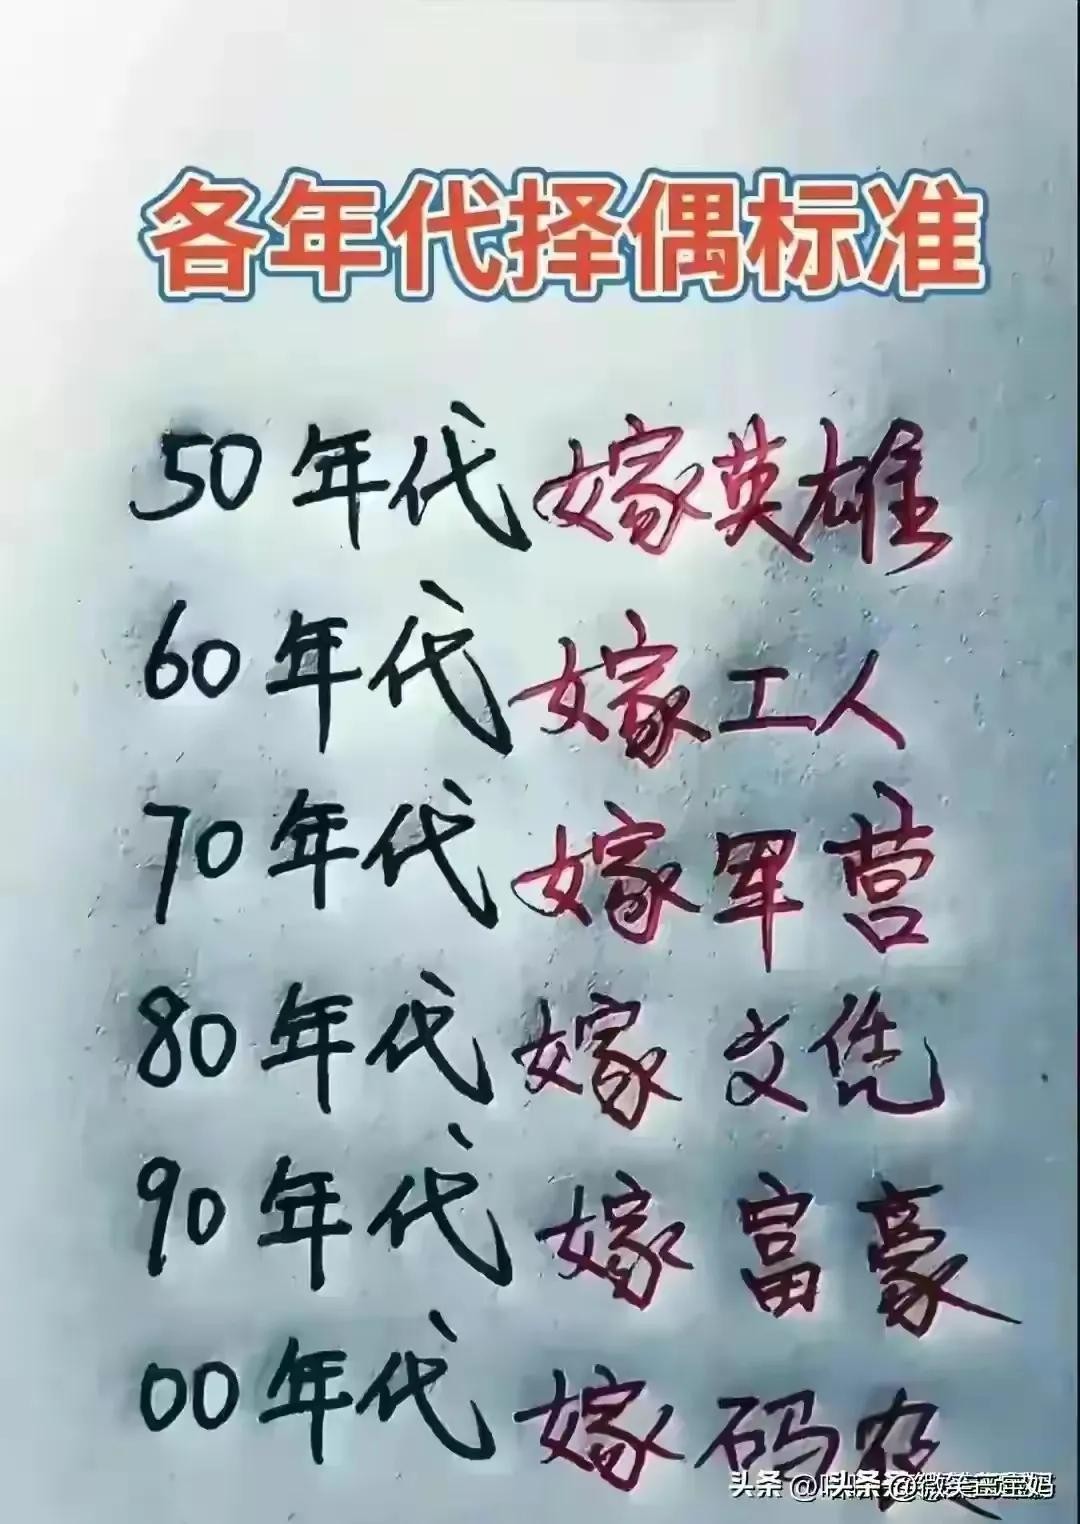 各年代择偶标准
50年代嫁英雄
60年代嫁工人
70年代嫁军营
80年代嫁文凭
90年代嫁富豪
00年代嫁码农
头条 @微笑